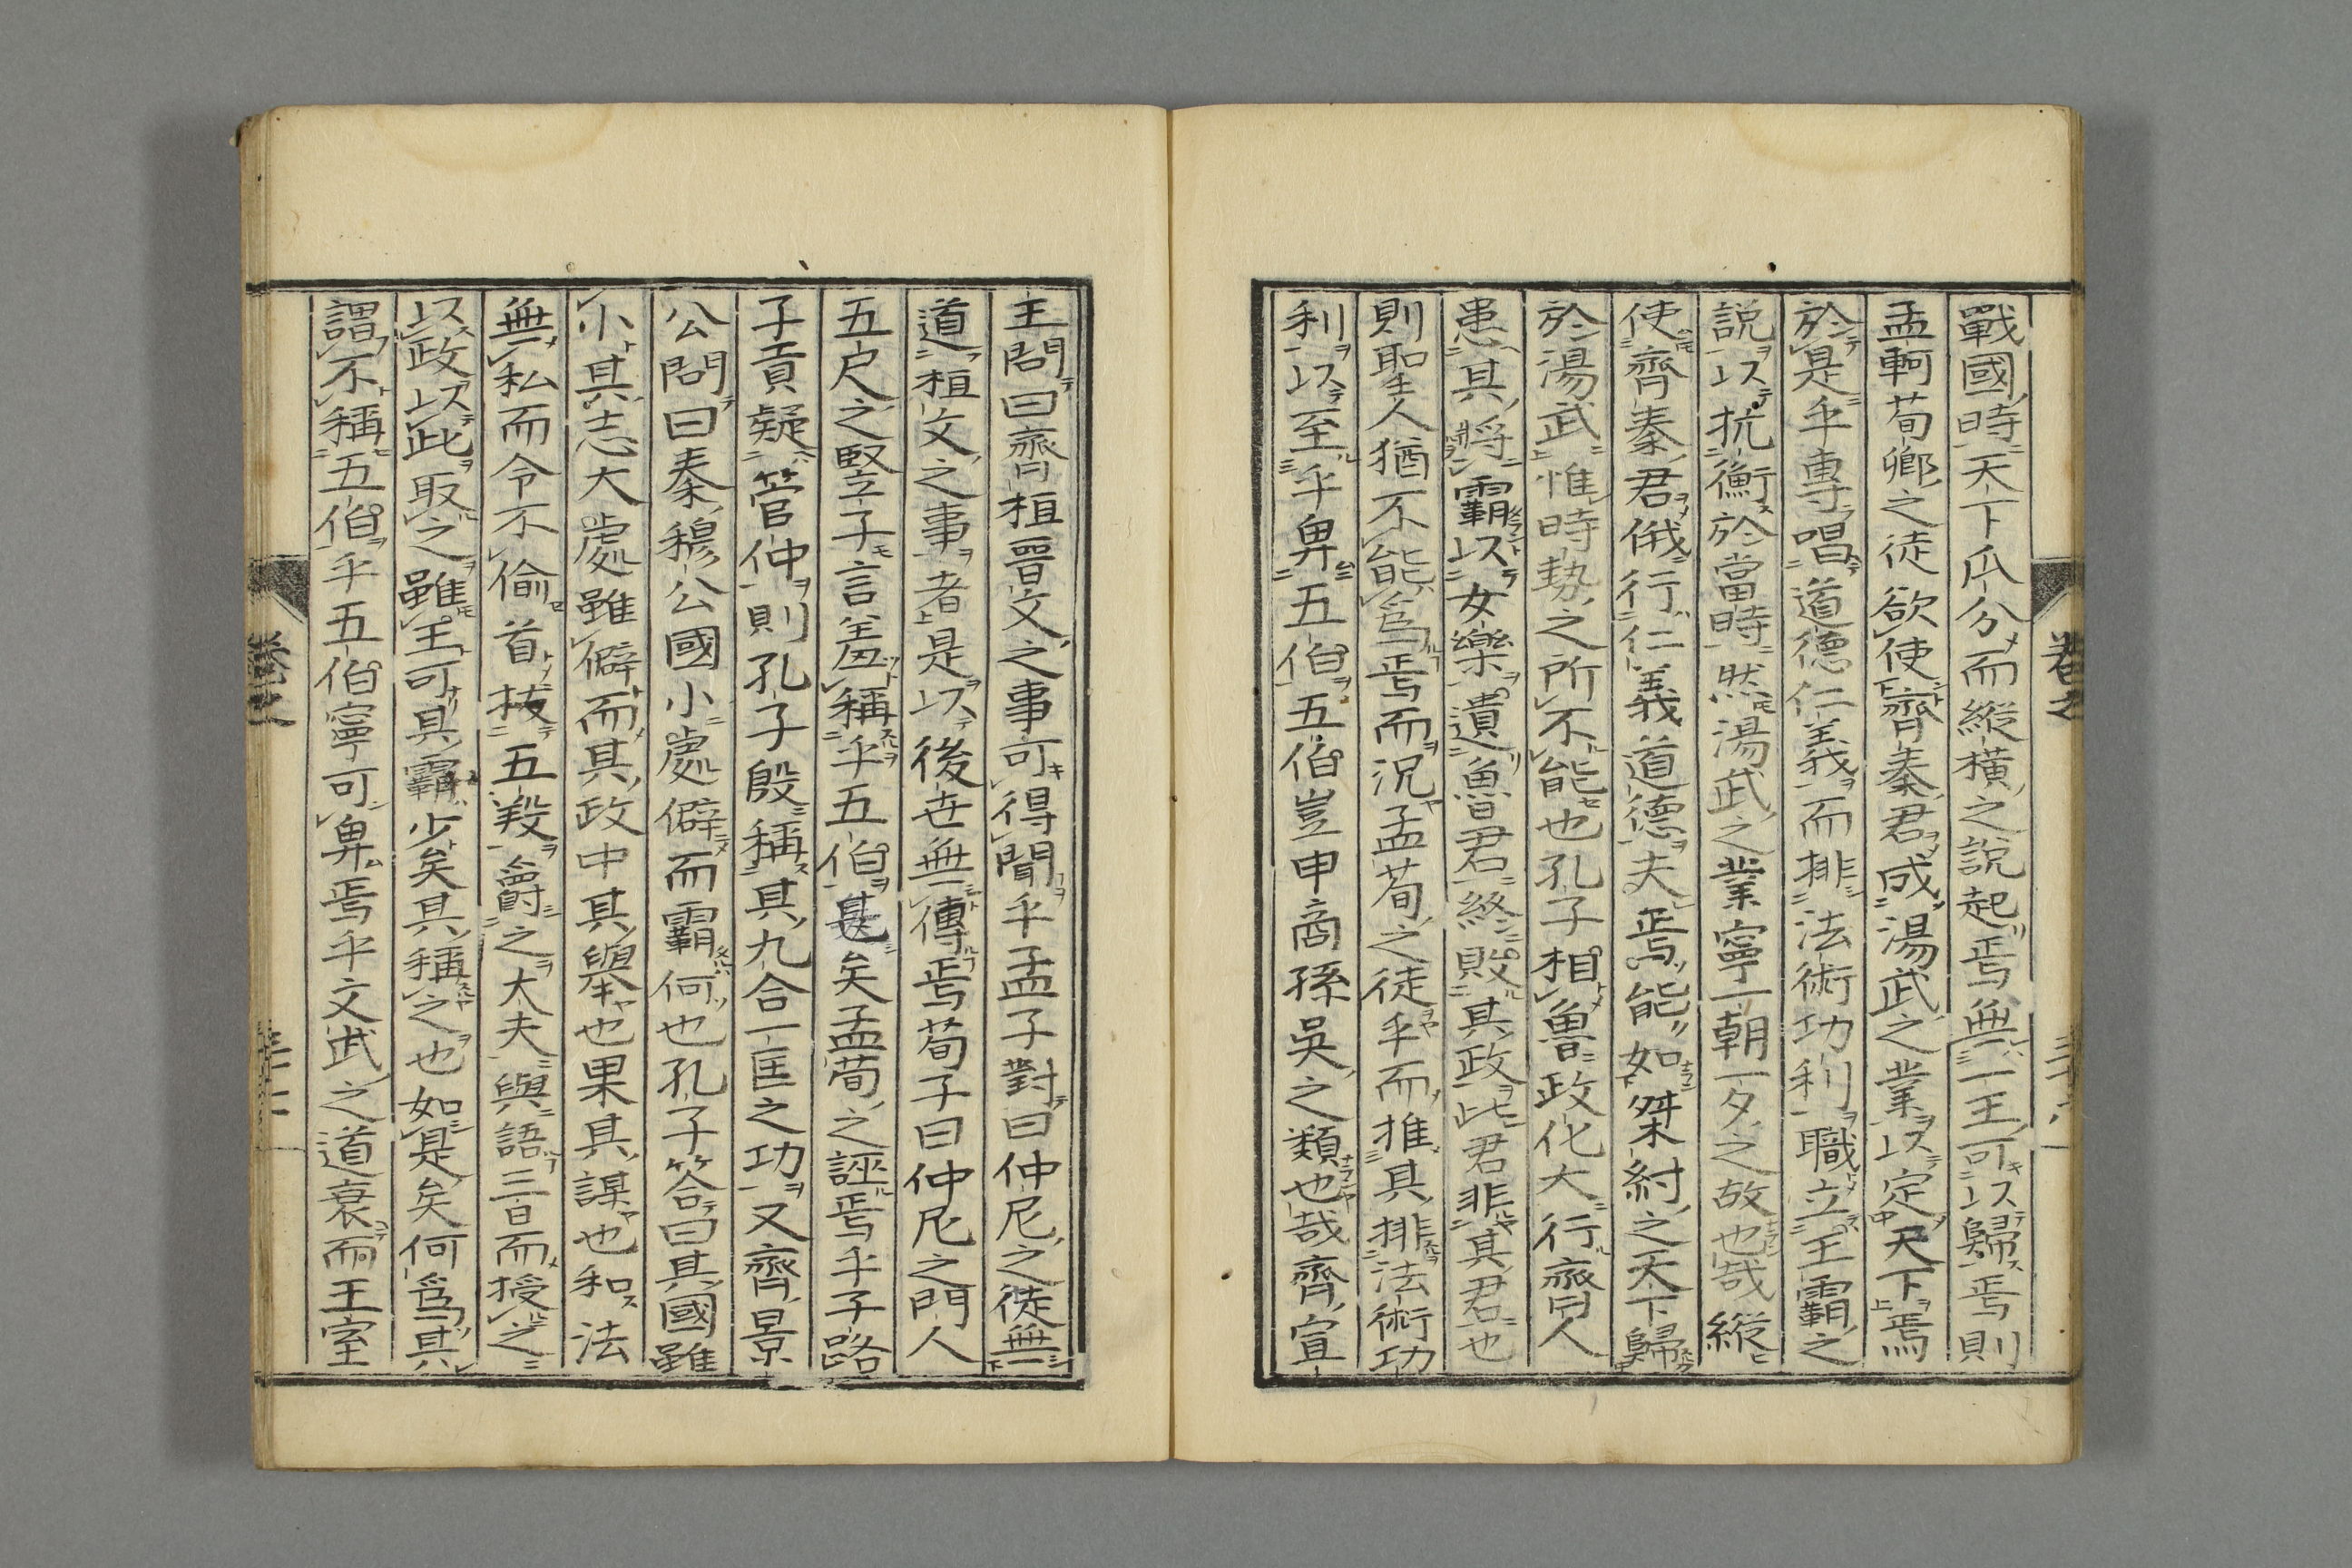 戰國時天下瓜分而縱橫之說起焉無一王可以歸焉則
孟軻荀卿之徒欲使齊秦君成湯武之業以定天下焉
於是乎專唱道德仁義而排法術功利職立王霸之
說以抗衡於當時然湯武之業寧一朝一夕之故也哉縱
使齊秦君俄行仁義道德夫焉能如桀紂之天下歸
於湯武惟時勢之所不能也孔子相魯政化大行齊人
患其將霸以女樂遺魯君終敗其政此君非其君也
則聖人猶不能爲焉而況孟荀之徒乎而推其排法術功
利以至乎卑五伯五伯豈申商孫吳之類也哉齊宣
王問曰齊桓晉文之事可得聞乎孟子對曰仲尼之徒無
道桓文之事者是以後世無傳焉荀子曰仲尼之門人
五尺之豎子言羞稱乎五伯甚矣孟荀之誣焉乎子路
子貢疑管仲則孔子殷稱其九合一匡之功又齊景
公問曰秦穆公國小處僻而霸何也孔子答曰其國雖
小其志大處雖僻而其政中其舉也果其謀也和法
無私而令不偷首拔五羖爵之大夫與語三日而授之
以政以此取之雖王可其霸少矣其稱之也如是矣何爲其
謂不稱五伯乎五伯寧可卑焉乎文武之道衰而王室